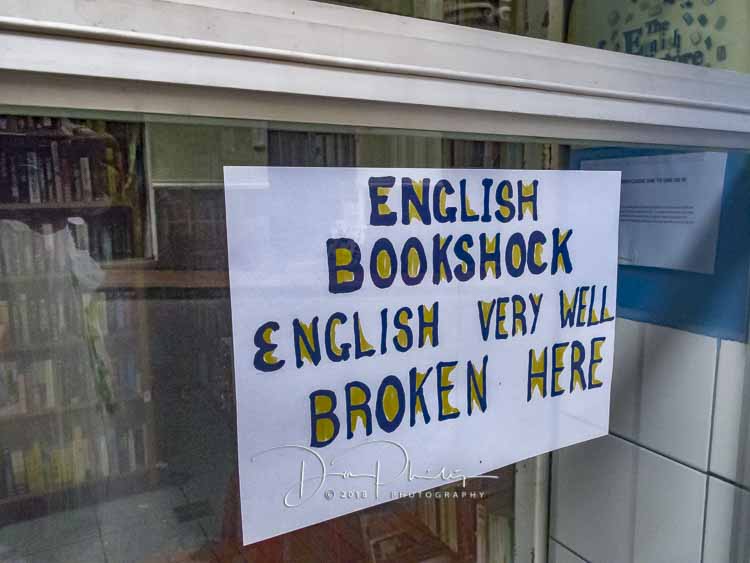 The
English
ENGLISH
BOOKSHOCK
ENGLISH VERY WELL
BROKEN HERE
© 2018 PHOTOGRAPHY